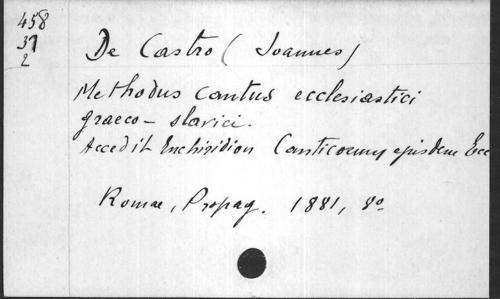 458
37
2
De Castro (Joannes)
Methodus cantus ecclesiastici
graeco-slavici.
Accedit Enchiridion Canticorum ejusdem Ecc
Romae, Propag. 1881, 8o